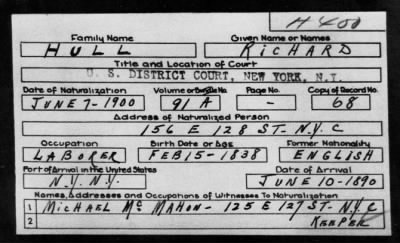 H 400
Family Name Given Name or Names
HULL RICHARD
Title and Location of Court
U. S. DISTRICT COURT, NEW YORK, N.Y.
Date of Naturalization Volume or Bundle No. Page No. Copy of Record No.
JUNE 7-1900 91 A - 68
Address of Naturalized Person
156 E 128 ST- N.Y. C
Occupation Birth Date or Age Former Nationality
LABORER FEB 15-1838 ENGLISH
Port of Arrival in the United States Date of Arrival
N.Y. N.Y. JUNE 10-1890
Names, Addresses and Occupations of Witnesses To Naturalization
1 MICHAEL Mc MAHON- 125 E 127 ST- N.Y. C
2 KEEPER